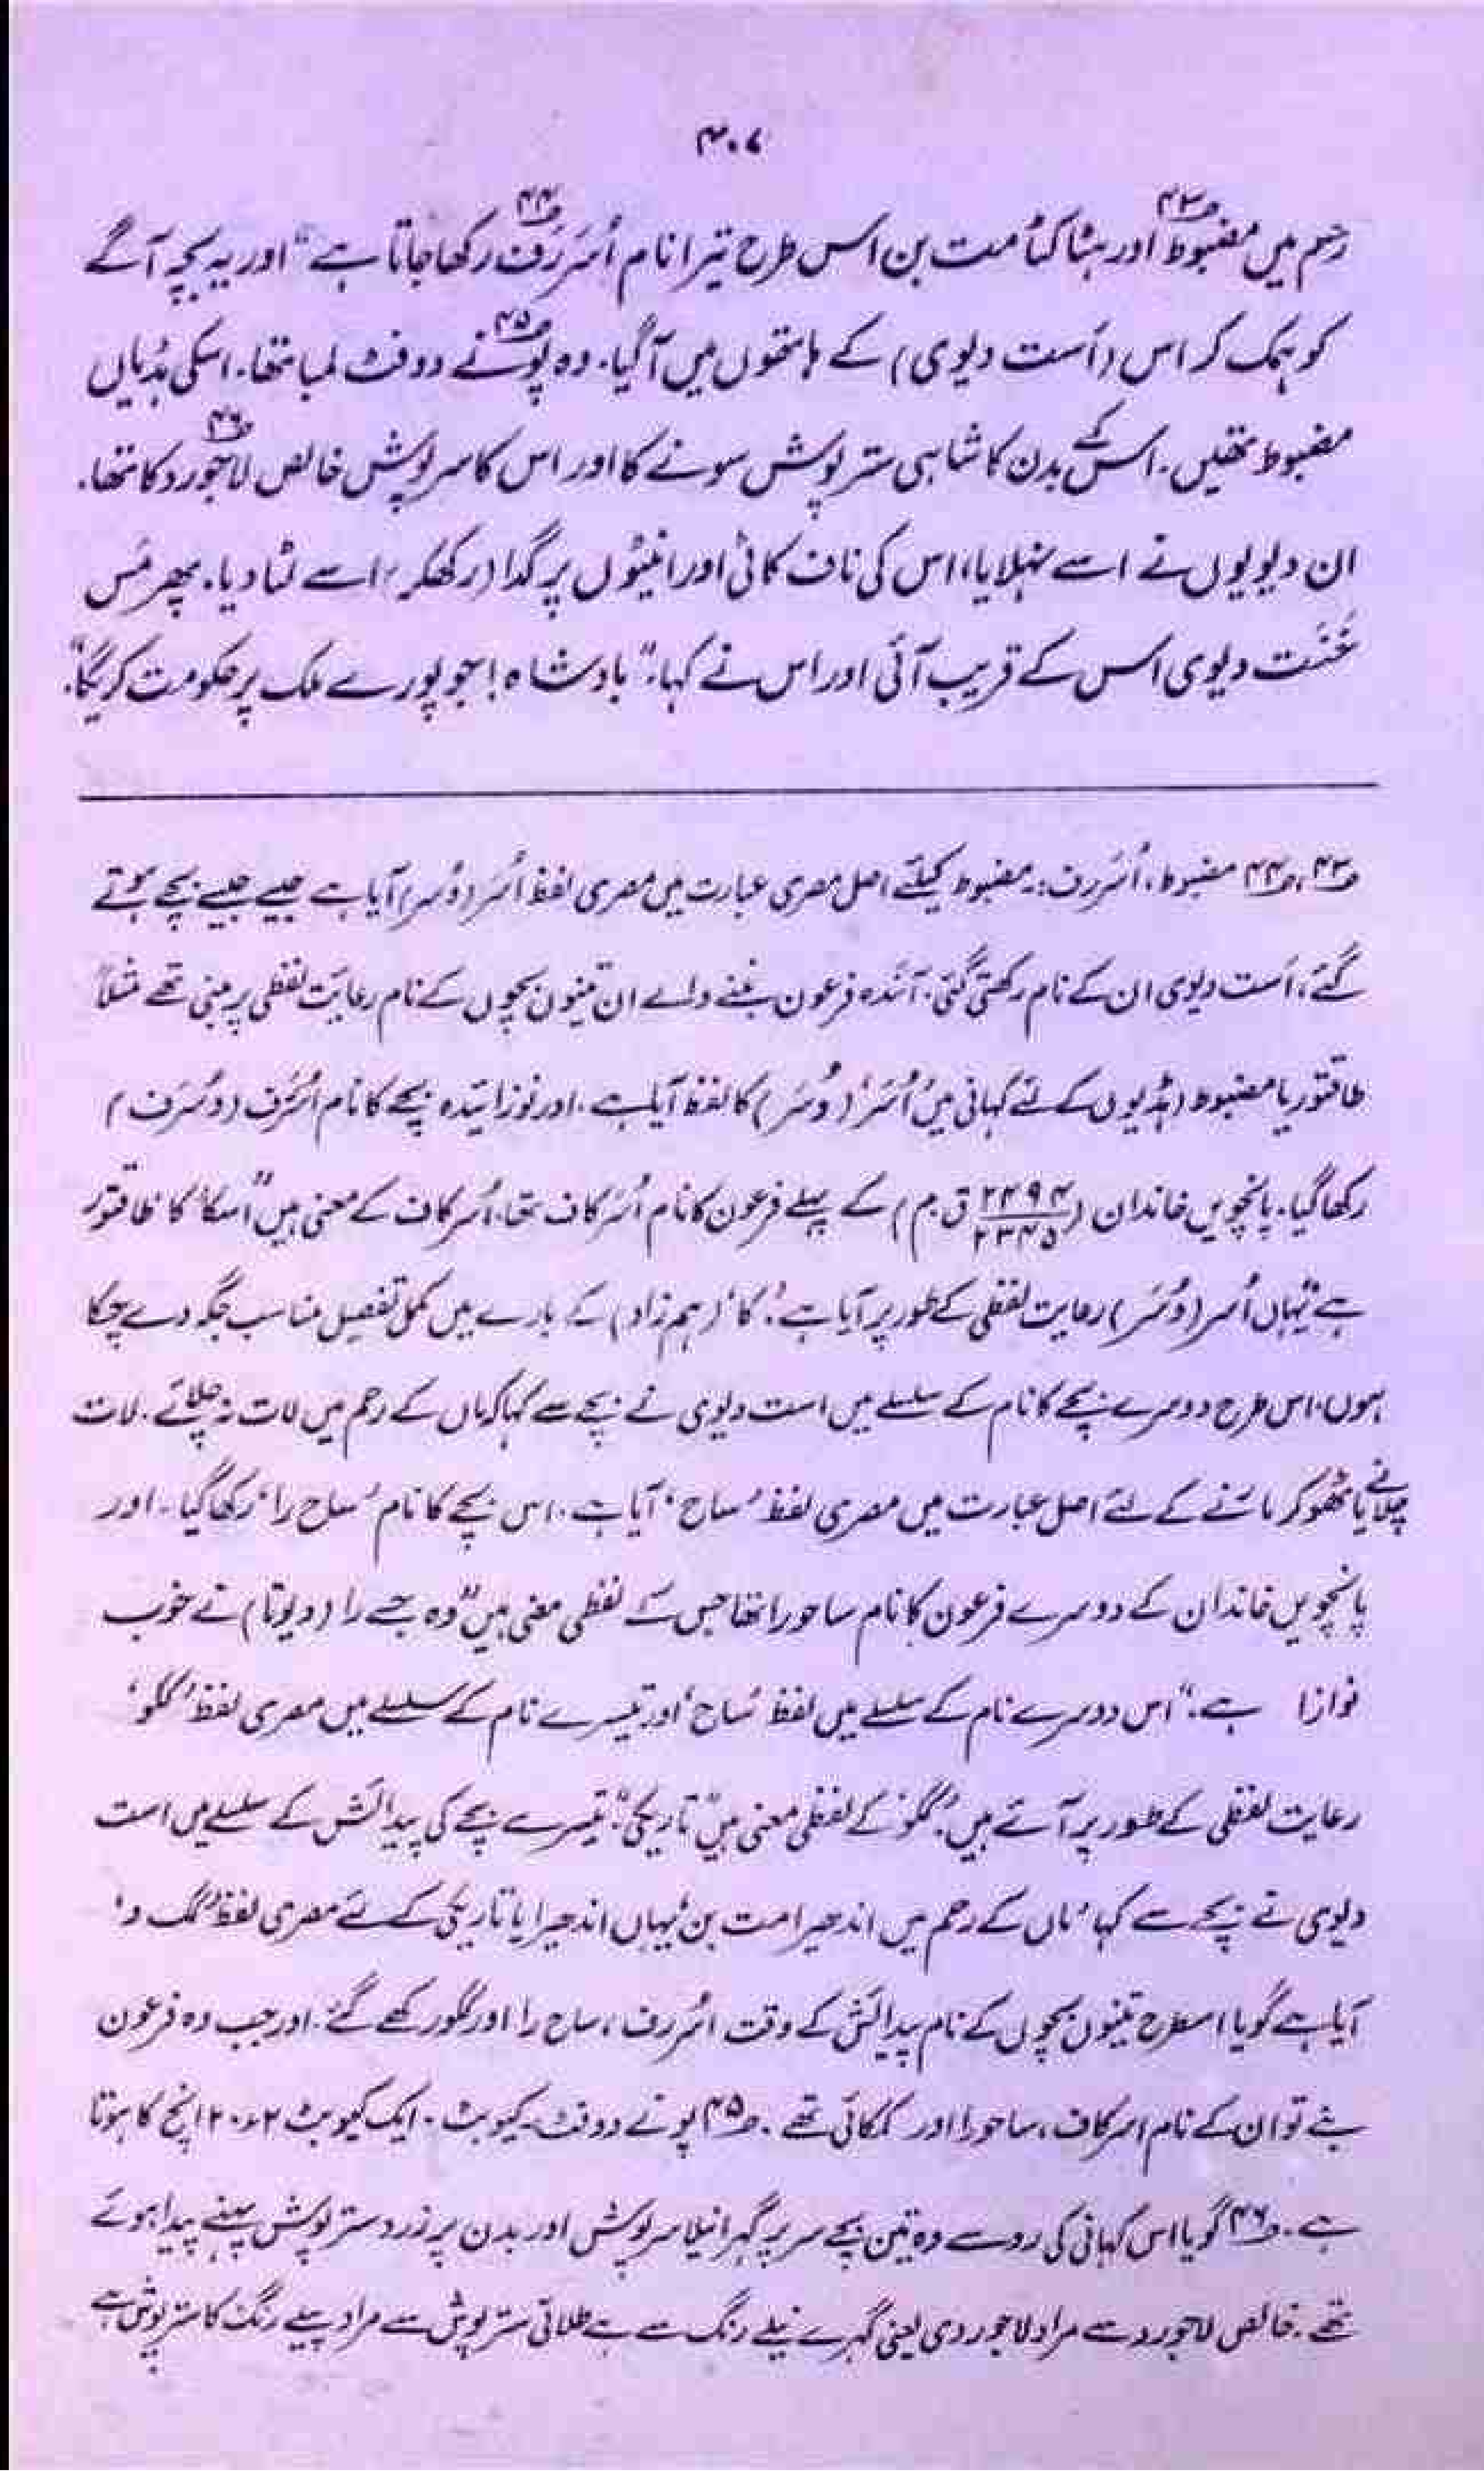 ۴۰۷
رحم میں مضبوط۴۳ اور ہٹا کٹا مت بن اس طرح تیرا نام اُسَررَف۴۴ رکھا جاتا ہے“ اور یہ بچہ آگے
کو ہمک کر اس (اَست دیوی) کے ہاتھوں میں آگیا۔ وہ پونے۴۵ دو فٹ لمبا تھا۔ اسکی ہڈیاں
مضبوط تھیں۔ اس کے بدن کا شاہی ستر پوش سونے کا اور اس کا سر پوش خالص لاجورد۴۶ کا تھا۔
ان دیویوں نے اسے نہلایا، اس کی ناف کاٹی اور اینٹوں پر گدا (رکھکر) اسے لٹا دیا۔ پھر مَس
خَنَت دیوی اس کے قریب آئی اور اس نے کہا۔ ”بادشاہ! جو پورے ملک پر حکومت کریگا“۔
۴۳، ۴۴ مضبوط، اُسَررف:۔ مضبوط کیلئے اصل مصری عبارت میں مصری لفظ اُسَر (وُسر) آیا ہے جیسے جیسے بچے ہوتے
گئے، اَست دیوی ان کے نام رکھتی گئی۔ آئندہ فرعون بننے والے ان تینوں بچوں کے نام رعایت لفظی پر مبنی تھے مثلاً
طاقتور یا مضبوط (ہڈیوں کے لئے کہانی میں ’اُسَر‘ (وُسَر) کا لفظ آیا ہے۔ اور نوزائیدہ بچے کا نام اُسَرَف (وسُرَف)
رکھا گیا۔ پانچویں خاندان (۲۴۹۴/۲۳۴۵ ق م) کے پہلے فرعون کا نام اُسَرکاف تھا، اُسرکاف کے معنی ہیں ”اسکا ’کا‘ طاقتور
ہے“ یہاں اُسر (وُسَر) رعایت لفظی کے طور پر آیا ہے۔ ’کا‘ (ہم زاد) کے بارے میں مکمل تفصیل مناسب جگہ دے چکا
ہوں، اس طرح دوسرے بچے کا نام کے سلسلے میں است دیوی نے بچے سے کہا کہ ماں کے رحم میں لات نہ چلائے۔ لات
چلانے یا ٹھوکر مارنے کے لئے اصل عبارت میں مصری لفظ ’ساح‘ آیا ہے۔ اس بچے کا نام ’ساح را‘ رکھا گیا۔ اور
پانچویں خاندان کے دوسرے فرعون کا نام ساحورا تھا جس کے لفظی معنی ہیں ”وہ جسے را (دیوتا) نے خوب
نوازا ہے۔“ اس دوسرے نام کے سلسلے میں لفظ ’ساح‘ اور تیسرے نام کے سلسلے میں مصری لفظ ’ککو‘
رعایت لفظی کے طور پر آئے ہیں۔ ’ککو‘ کے لفظی معنی ہیں ”تاریکی“۔ تیسرے بچے کی پیدائش کے سلسلے میں است
دیوی نے بچے سے کہا ’ماں کے رحم میں اندھیرا مت بن‘ یہاں اندھیرا یا تاریکی کے لئے مصری لفظ ’کک و‘
آیا ہے گویا اسطرح تینوں بچوں کے نام پیدائش کے وقت اسُررف، ساح را اور ککو رکھے گئے۔ اور جب وہ فرعون
بنے تو ان کے نام اسرکاف، ساحورا اور ککائی تھے۔ ۴۵ پونے دو فٹ۔ کیوبٹ۔ ایک کیوبٹ ۲۰۶۲ انچ کا ہوتا
ہے۔ ۴۶ گویا اس کہانی کی رو سے وہ تین بچے سر پر گہرا نیلا سر پوش اور بدن پر زرد ستر پوش پہنے پیدا ہوئے
تھے۔ خالص لاجورد سے مراد لاجوردی یعنی گہرے نیلے رنگ سے ہے طلائی ستر پوش سے مراد پیلے رنگ کا ستر پوش ہے